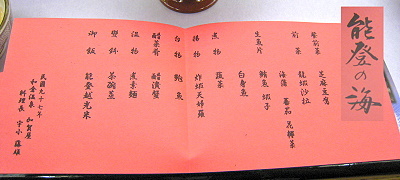 能登の海
聖前菜 芝麻豆腐
前菜 龍蝦沙拉
海蒲 番茄 花椰菜
生魚片 鮪魚 蝦子
白身魚
煮物 蔬菜
揚物 炸蝦天婦羅
台物 鮑魚
酢菜骨 醋漬蟹
溫物 煮素麵
變鉢 茶碗蒸
御飯 能登越光米
民國九十七年
和倉溫泉 加賀屋
料理長 宇小藤雄